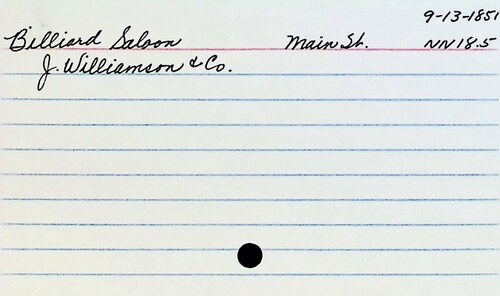 9-13-1851
Billiard Saloon Main St. NN 18.5
J. Williamson & Co.